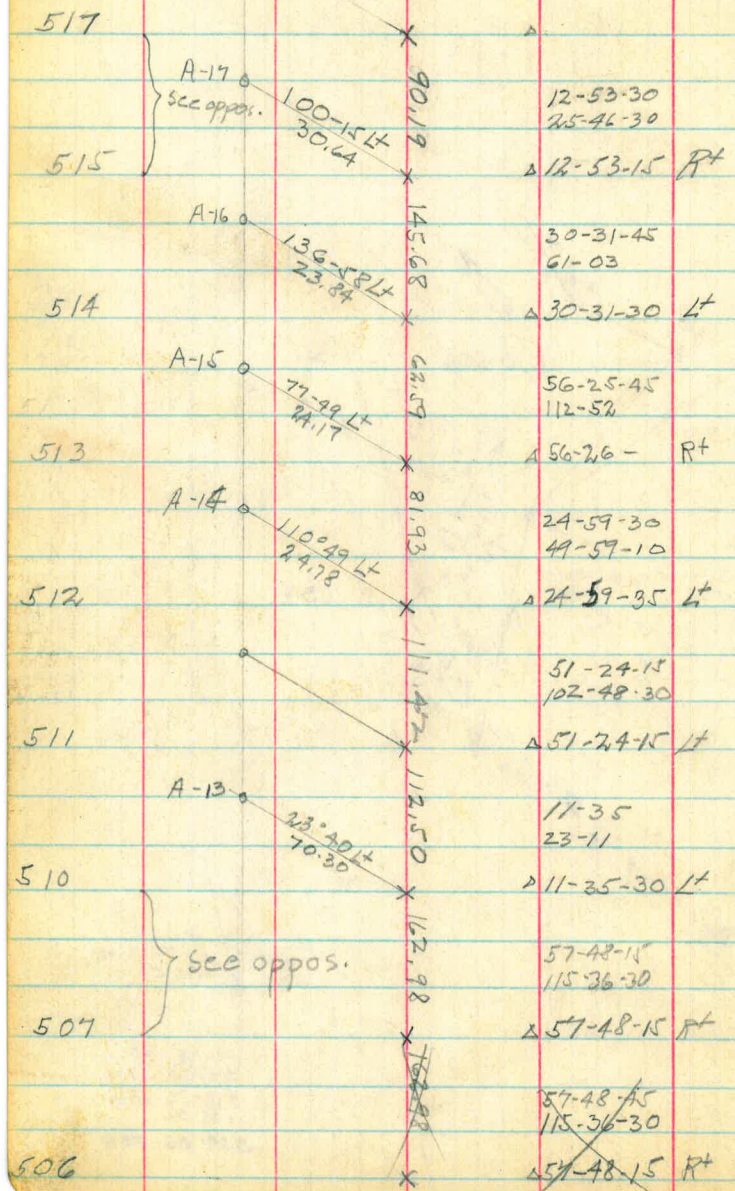 517
A-17
See oppos.
100-15 Lt
30.64
90.19
12-53-30
25-46-30
515
∆ 12-53-15 Rt
A-16
136-58 Lt
23.84
145.68
30-31-45
61-03
514
∆ 30-31-30 Lt
A-15
77-49 Lt
24.17
62.59
56-25-45
112-52
513
∆ 56-26- Rt
A-14
110°49 Lt
24.78
81.93
24-59-30
49-59-10
512
∆ 24-59-35 Lt
111.47
51-24-15
102-48-30
511
∆ 51-24-15 Lt
A-13
23°40 Lt
70.30
112.50
11-35
23-11
510
∆ 11-35-30 Lt
See oppos.
162.98
57-48-15
115-36-30
507
∆ 57-48-15 Rt
162.98
57-48-45
115-36-30
506
∆ 57-48-15 Rt